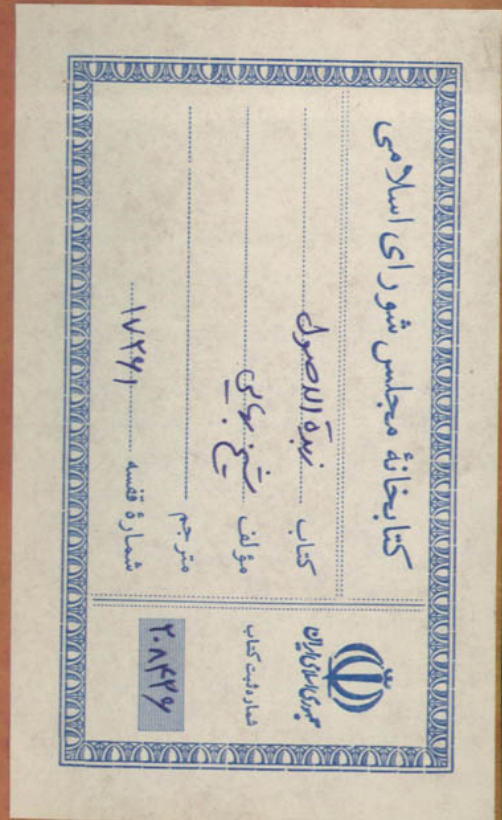 کتابخانهٔ مجلس شورای اسلامی
کتاب زبدة الاصول
مؤلف شیخ بهایی
مترجم
شمارهٔ قفسه ۱۷۲۶۱
جمهوری اسلامی ایران
شماره ثبت کتاب
۲۰۸۴۳۶